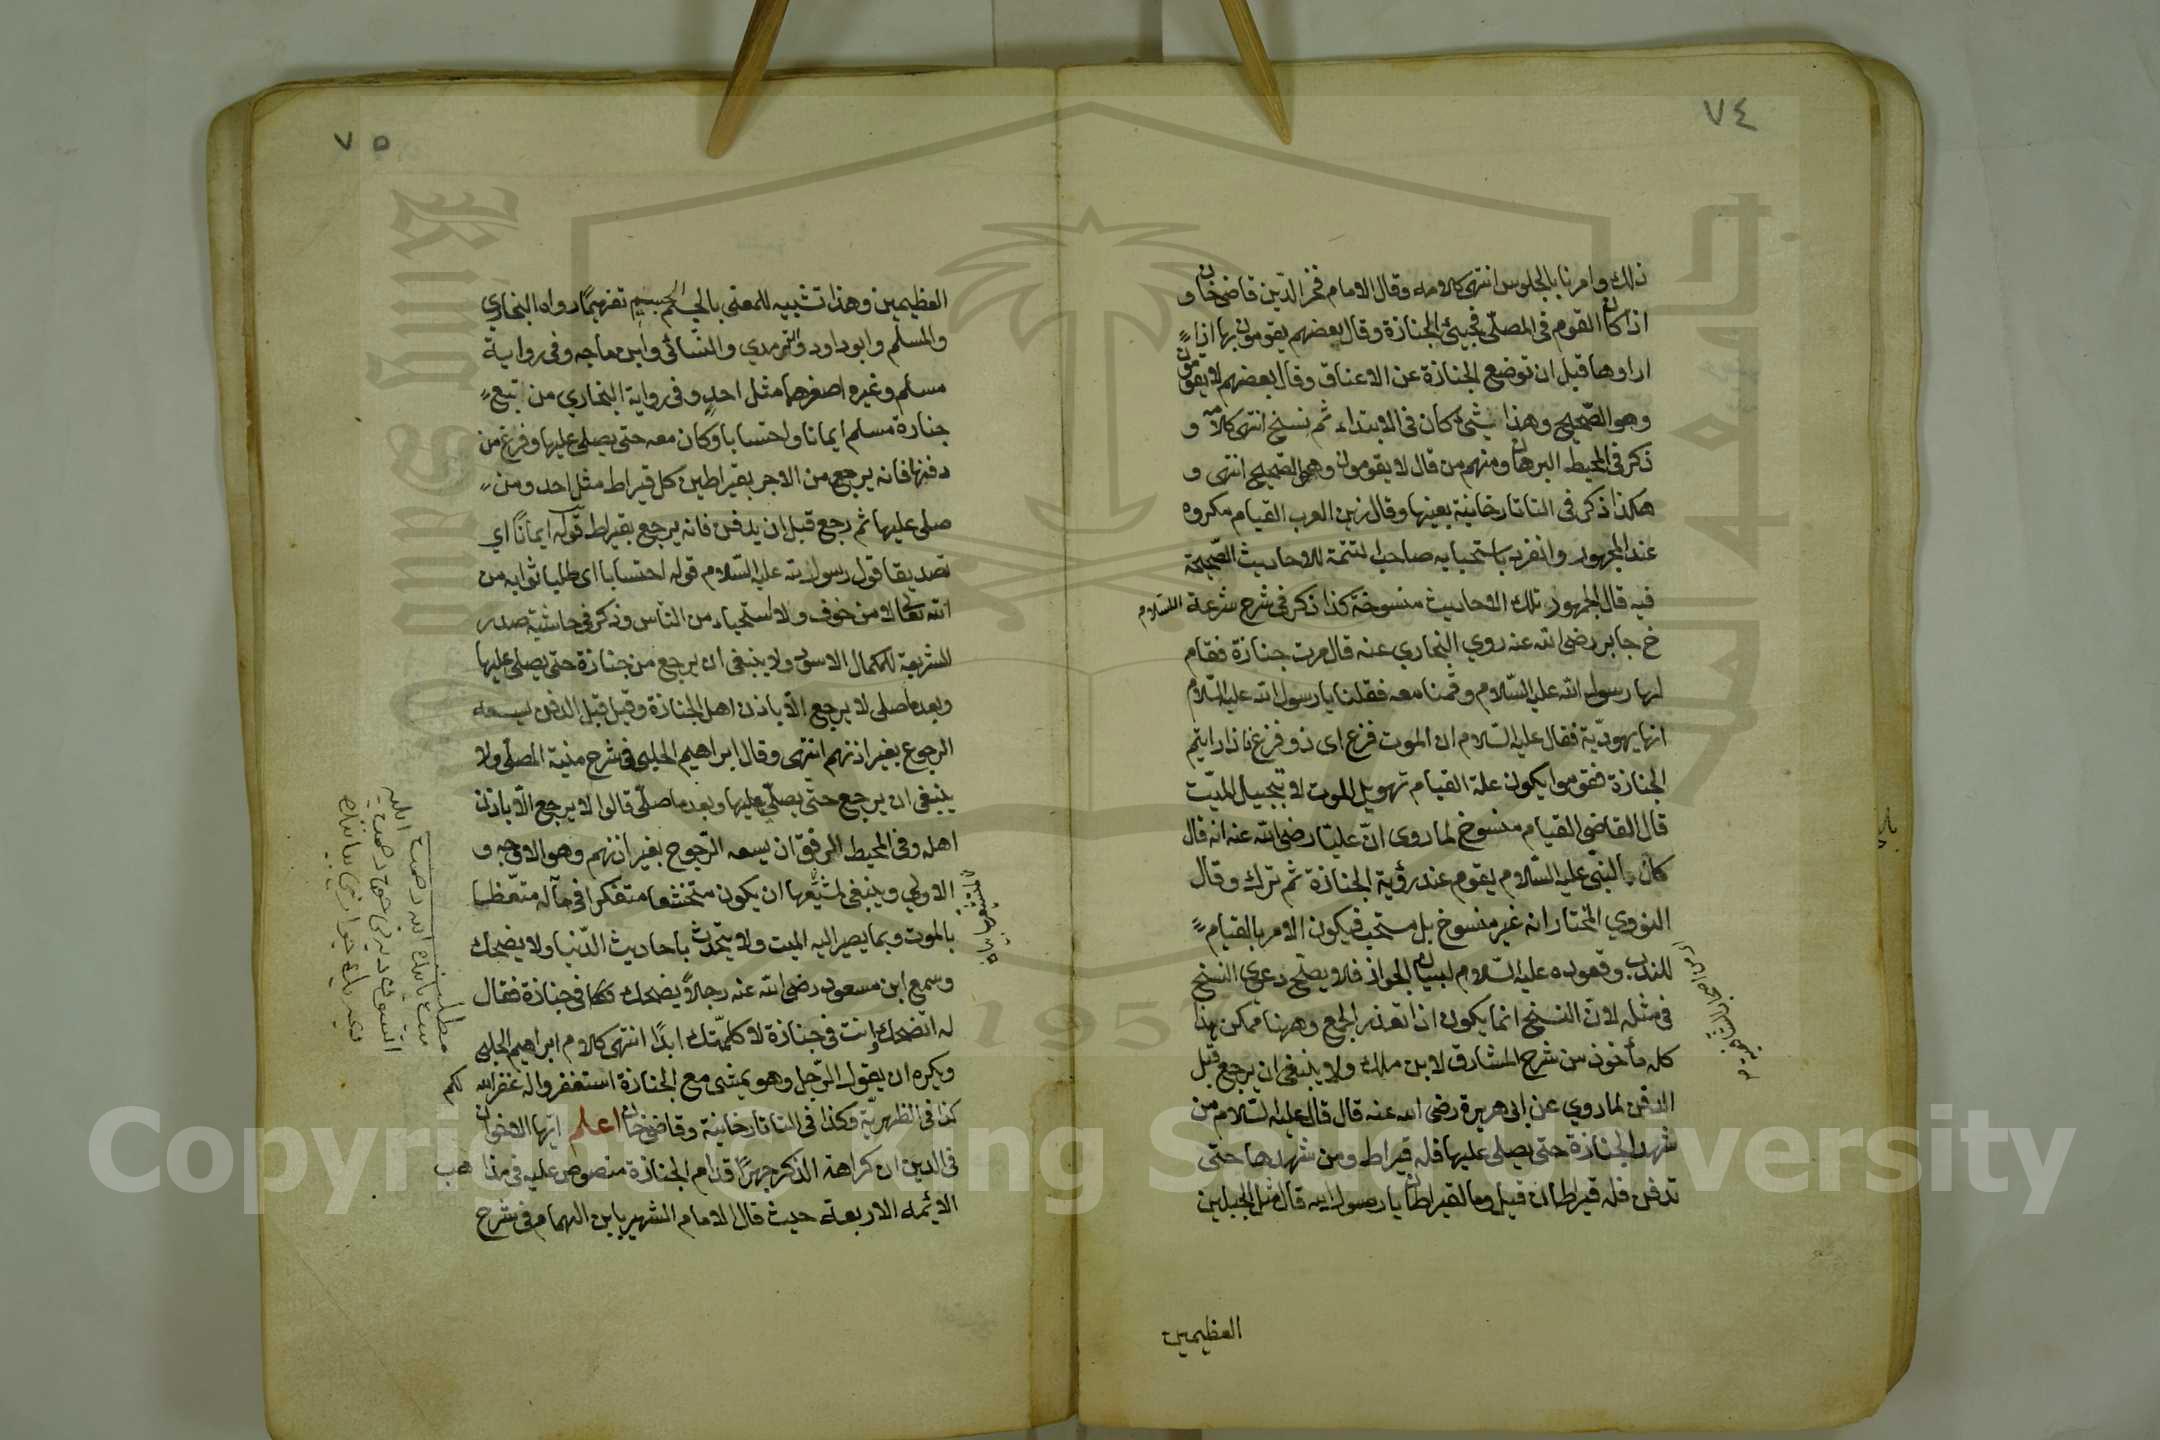 ٧٤
ذلك وامرنا بالجلوس انتهى كلامه وقال الامام فخر الدّين قاضى خان و
اذا كان القوم فى المصلّى فجيئ الجنازة وقال بعضهم يقومون بها اذا
اراوها قبل ان توضع الجنازة عن الاعناق وقال بعضهم لا يقومون
وهو الصّحيح وهذا شئ كان فى الابتداء ثم نسخ انتهى كلامه و
ذكر فى المحيط البرهان ومنهم من قال لا يقومون وهو الصّحيح انتهى و
هكذا ذكر فى التاتارخانية بعينها وقال زين العرب القيام مكروه
عند الجمهور وانفرد باستحبابه صاحب التتمة للاحاديث الصّحيحة
فيه قال الجمهور تلك الاحاديث منسوخة كذا ذكر فى شرح شرعة الاسلام
خ جابر رضى الله عنه روي البخاري عنه قال مرت جنازة فقام
لها رسول الله عليه السّلام وقمنا معه فقلنا يا رسول الله عليه السّلام
انها يهوديّة فقال عليه السّلام ان الموت فزع اى ذو فزع فاذا رايتم
الجنازة فقوموا يكون علة القيام تهويل الموت لا تبجيل الميّت
قال القاضى القيام منسوخ لما روى انّ عليّا رضى الله عنه انه قال
كان النبى عليه السّلام يقوم عند رؤية الجنازة ثم ترك وقال
النووي المختار انه غير منسوخ بل مستحب فيكون الامر بالقيام
للندب وقعوده عليه السّلام لبيان الجواز فلا يصحّ دعوى النسخ
فى مثله لانّ النسخ انما يكون اذا تعذر الجمع وههنا ممكن هذا
كله مأخوذ من شرح المشارق لابن ملك ولا ينبغى ان يرجع قبل
الدفن لما روي عن ابى هريرة رضى الله عنه قال قال عليه السّلام من
شهد الجنازة حتى يصلى عليها فله قيراط ومن شهدها حتى
تدفن فله قيراطان قيل وما القيراطان يا رسول الله قال مثل الجبلين
العظيمين
٧٥
العظيمين وهذا تشبيه للمعنى بالجسم الجسيم تفهيمًا رواه البخاري
والمسلم وابو داود والترمذي والنسائى وابن ماجه وفى رواية
مسلم وغيره اصغرهما مثل احد وفى رواية البخاري من تبع
جنازة مسلم ايمانا واحتسابا وكان معه حتى يصلى عليها وفرغ من
دفنها فانه يرجع من الاجر بقيراطين كل قيراط مثل احد ومن
صلى عليها ثم رجع قبل ان يدفن فانه يرجع بقيراط قوله ايمانًا اي
تصديقا قول رسول الله عليه السّلام قوله احتسابا اى طلبا ثوابه من
الله تعالى لا من خوف ولا استحياء من النّاس وذكر فى حاشية صدر
الشريعة للكمال الاسود ولا ينبغى ان يرجع من جنازة حتى يصلى عليها
وبعده ما صلى لا يرجع الّا باذن اهل الجنازة وقيل قبل الدفن يسعه
الرجوع بغير اذنهم انتهى وقال ابراهيم الحلبى فى شرح منية المصلّى ولا
ينبغى ان يرجع حتى يصلّى عليها وبعد ما صلّى قالوا لا يرجع الّا باذن
اهله وفى المحيط الرفق ان يسعه الرّجوع بغير اذنهم وهو الاوجه و
الاولى وينبغى لمشيّعها ان يكون متخشعا متفكرا فى مآله متعظا
بالموت وبما يصير اليه الميت ولا يتحدّث باحاديث الدّنيا ولا يضحك
وسمع ابن مسعود رضى الله عنه رجلاً يضحك فى جنازة فقال
له اتضحك وانت فى جنازة لا كلّمتك ابدًا انتهى كلام ابراهيم الحلبى
ويكره ان يقول الرّجل وهو يمشى مع الجنازة استغفروا له غفر الله لكم
كذا فى الظهيريّة وكذا فى التاتارخانية وقاضى خان اعلم ايّها الاخوان
فى الدين ان كراهة الذكر جهرًا قدّام الجنازة منصوص عليه فى مذاهب
الائمة الاربعة حيث قال الامام المشهير بابن الهمام فى شرح
Copyright © King Saud University
1957